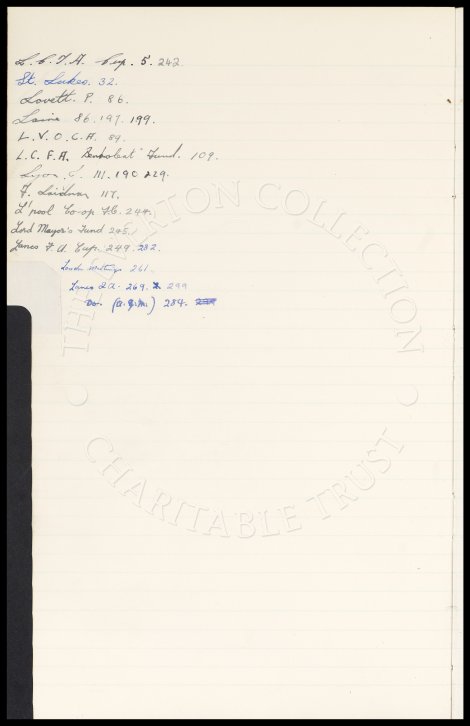 L.C.F.A. Cup. 5. 242
St. Lukes. 32.
Lovett. P. 86.
Laine 86. 197. 199.
L.V.O.C.A. 89.
L.C.F.A. Benevolent Fund. 109.
Lyon. J. 111. 190 229.
F. Laidman 117.
L'pool Co-op F.C. 244.
Lord Mayor's Fund 245.
Lancs F.A Cup. 249. 282.
261.
Lancs 269. 299
Do. (A.G.M.) 284.
THE EVERTON COLLECTION
CHARITABLE TRUST